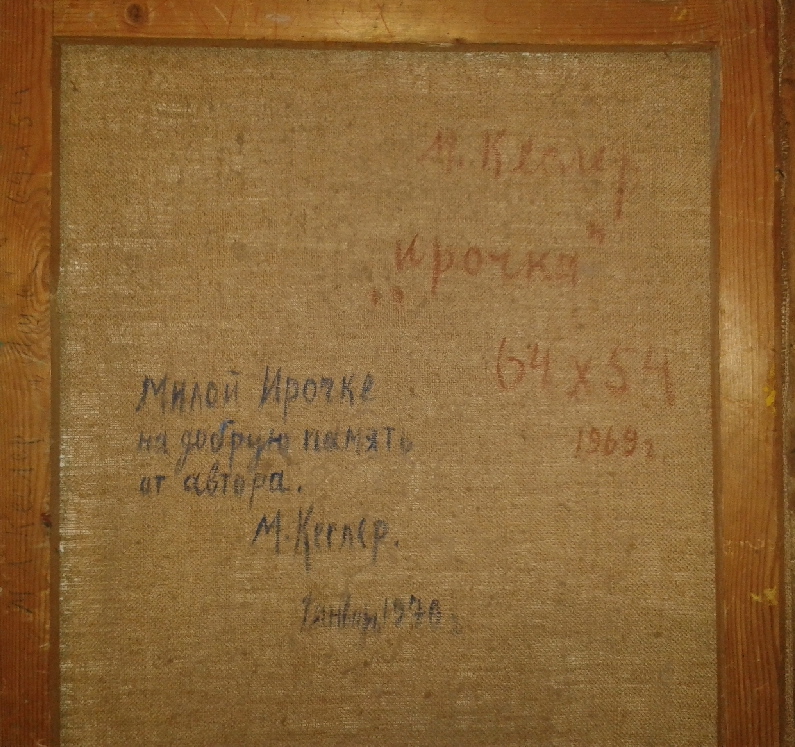 М. Кеслер
„Ирочка"
64 х 54
1969 г
Милой Ирочке
на добрую память
от автора.
М. Кеслер.
Январь 1970 г.
64 х 54